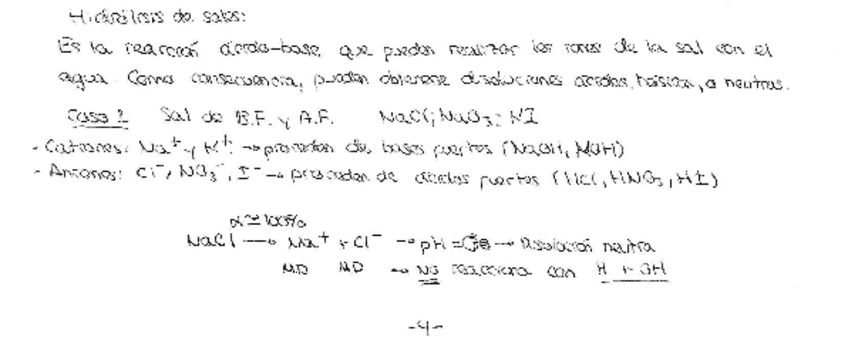 Hidrólisis de sales:
Es la reacción ácido-base que pueden realizar los iones de la sal con el
agua. Como consecuencia, pueden obtenerse disoluciones ácidas, básicas, o neutras.
Caso 1 Sal de B.F. y A.F. NaCl; NaNO3; KI
- Cationes: Na+ y K+ → proceden de bases fuertes (NaOH, KOH)
- Aniones: Cl-, NO3-, I- → proceden de ácidos fuertes (HCl, HNO3, HI)
α≅100%
NaCl → Na+ + Cl- → pH = → Disolución neutra
MD MD → NO reacciona con H + OH
-4-